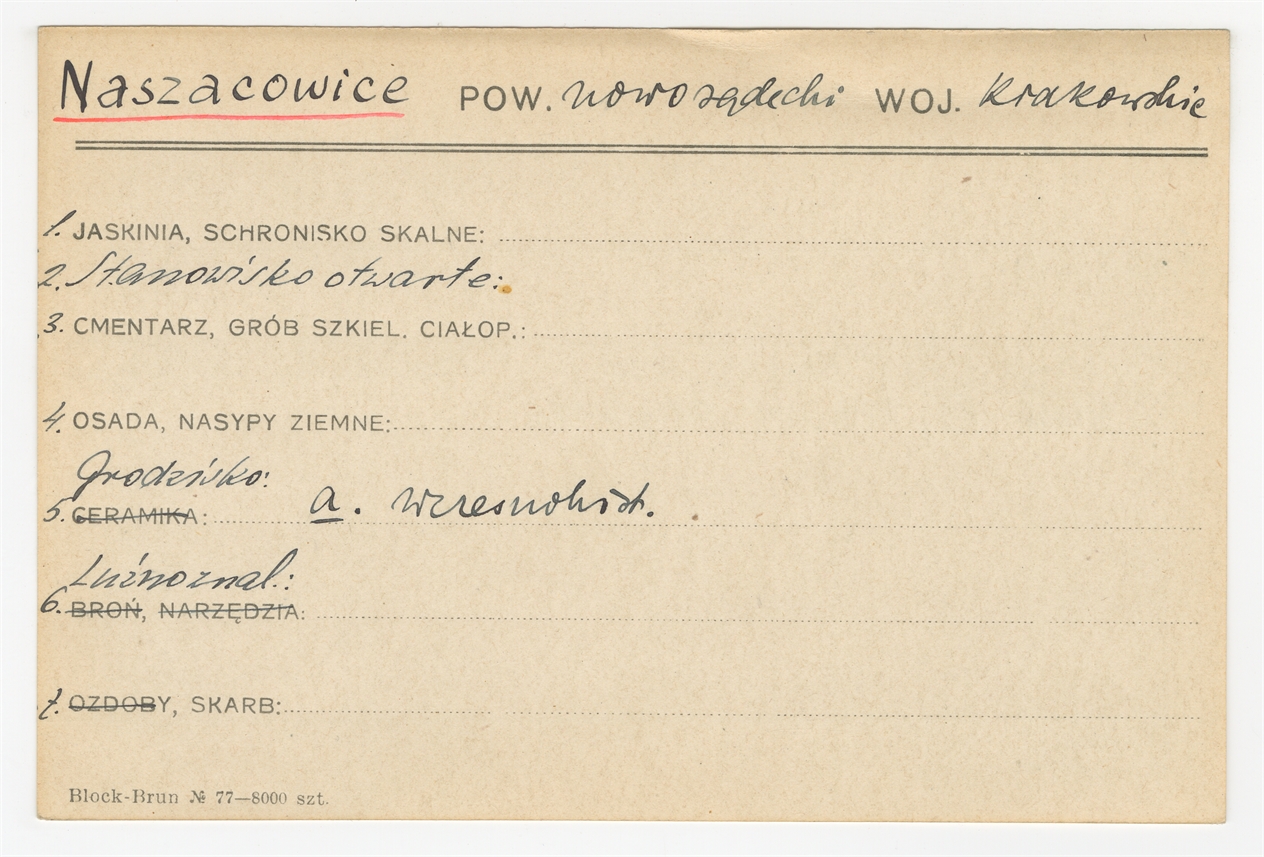 Naszacowice POW. nowosądecki WOJ. Krakowskie
1. JASKINIA, SCHRONISKO SKALNE:
2. Stanowisko otwarte:
3. CMENTARZ, GRÓB SZKIEL. CIAŁOP.:
4. OSADA, NASYPY ZIEMNE:
Grodzisko:
5. CERAMIKA: a. wczesnohist.
Luźno znal.:
6. BROŃ, NARZĘDZIA:
7. OZDOBY, SKARB:
Block-Brun № 77—8000 szt.